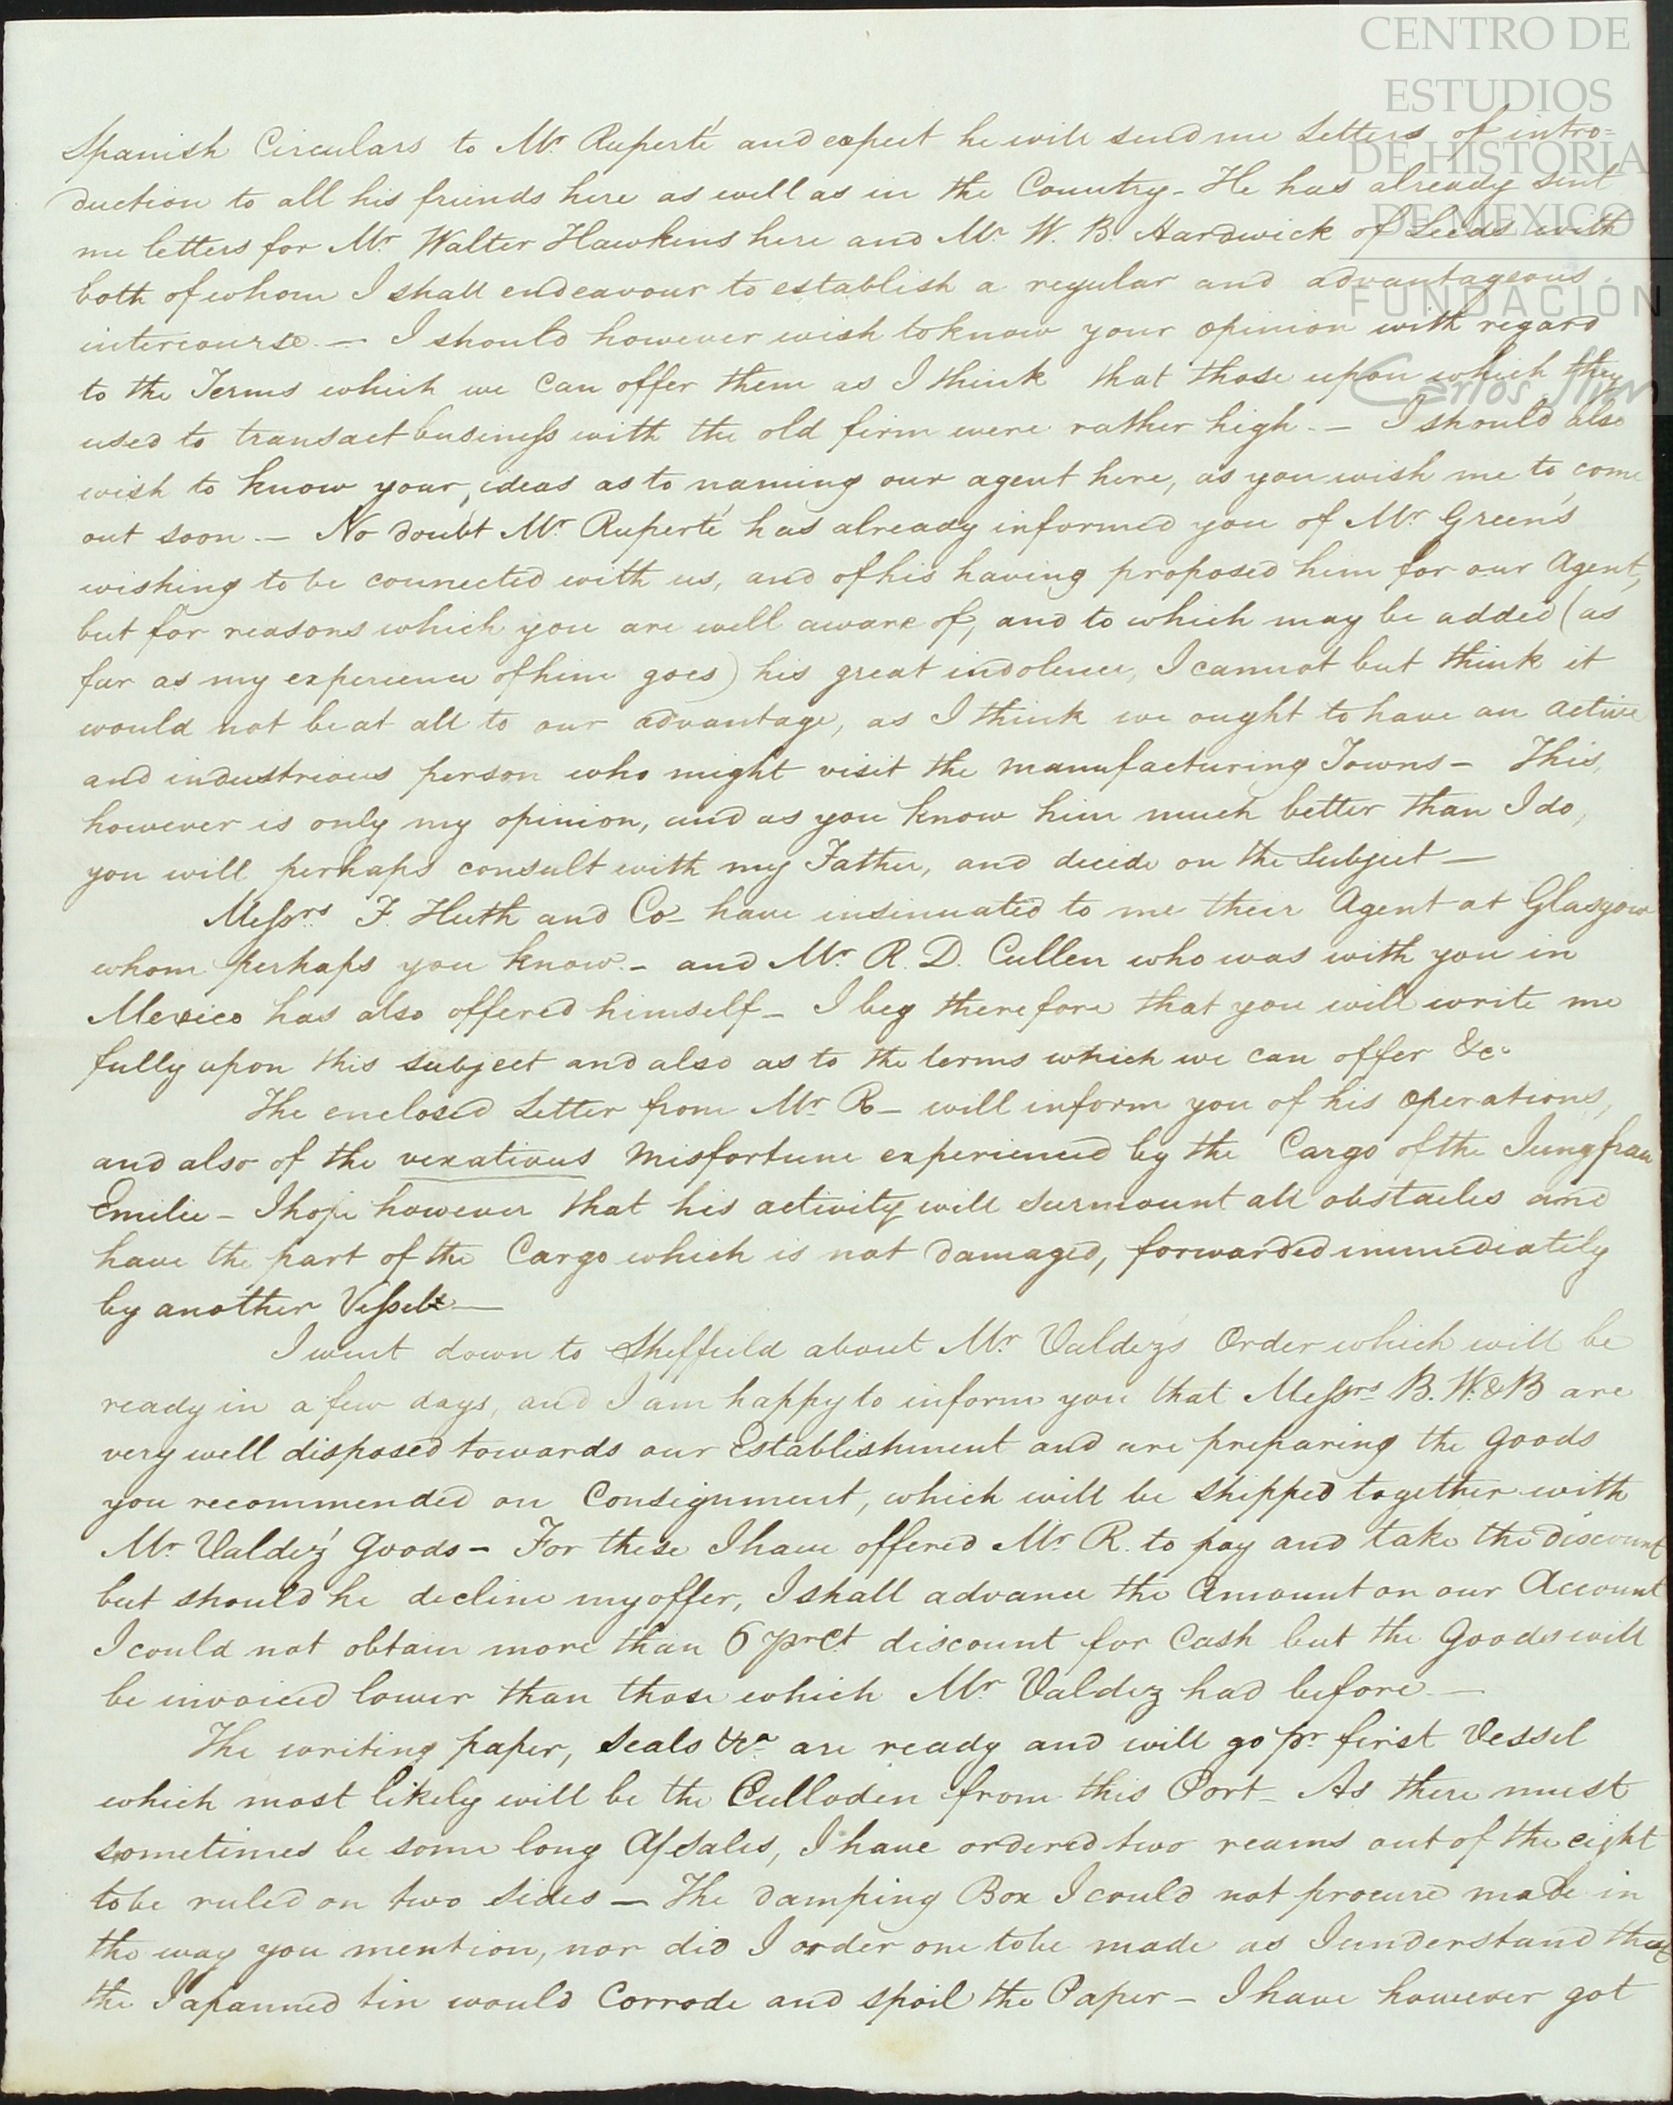 CENTRO DE
ESTUDIOS
DE HISTORIA
DE MEXICO
FUNDACIÓN
Carlos Slim
Spanish Circulars to Mr Ruperté and expect he will send me Letters of intro=
duction to all his friends here as well as in the Country - He has already sent
me letters for Mr Walter Hawkins here and Mr W. B. Hardwick of Leeds with
both of whom I shall endeavour to establish a regular and advantageous
intercourse. — I should however wish to know your opinion with regard
to the Terms which we can offer them as I think that those upon which they
used to transact business with the old firm were rather high. — I should also
wish to know your ideas as to naming our agent here, as you wish me to come
out soon. — No doubt Mr Ruperté has already informed you of Mr Green's
wishing to be connected with us, and of his having proposed him for our Agent,
but for reasons which you are well aware of, and to which may be added (as
far as my experience of him goes) his great indolence, I cannot but think it
would not be at all to our advantage, as I think we ought to have an active
and industrious person who might visit the manufacturing Towns — This,
however is only my opinion, and as you know him much better than I do,
you will perhaps consult with my Father, and decide on the Subject —
Messrs F. Huth and Co have insinuated to me their Agent at Glasgow
whom perhaps you know. — and Mr R. D. Cullen who was with you in
Mexico has also offered himself — I beg therefore that you will write me
fully upon this subject and also as to the terms which we can offer &c.
The enclosed Letter from Mr R — will inform you of his operations,
and also of the vexatious misfortune experienced by the Cargo of the Jungfrau
Emilie — I hope however that his activity will surmount all obstacles and
have the part of the Cargo which is not damaged, forwarded immediately
by another Vessel —
I went down to Sheffield about Mr Valdez's Order which will be
ready in a few days, and I am happy to inform you that Messrs B. W. & B are
very well disposed towards our Establishment and are preparing the goods
you recommended on Consignment, which will be shipped together with
Mr Valdez' goods — For these I have offered Mr R. to pay and take the discount
but should he decline my offer, I shall advance the Amount on our Account
I could not obtain more than 6 pr Ct discount for Cash but the Goods will
be invoiced lower than those which Mr Valdez had before —
The writing paper, Seals &ca are ready and will go pr first Vessel
which most likely will be the Culloden from this Port — As there must
sometimes be some long A/Sales, I have ordered two reams out of the eight
to be ruled on two sides — The damping Box I could not procure made in
the way you mention, nor did I order one to be made as I understand that
the Japanned tin would Corrode and spoil the Paper — I have however got